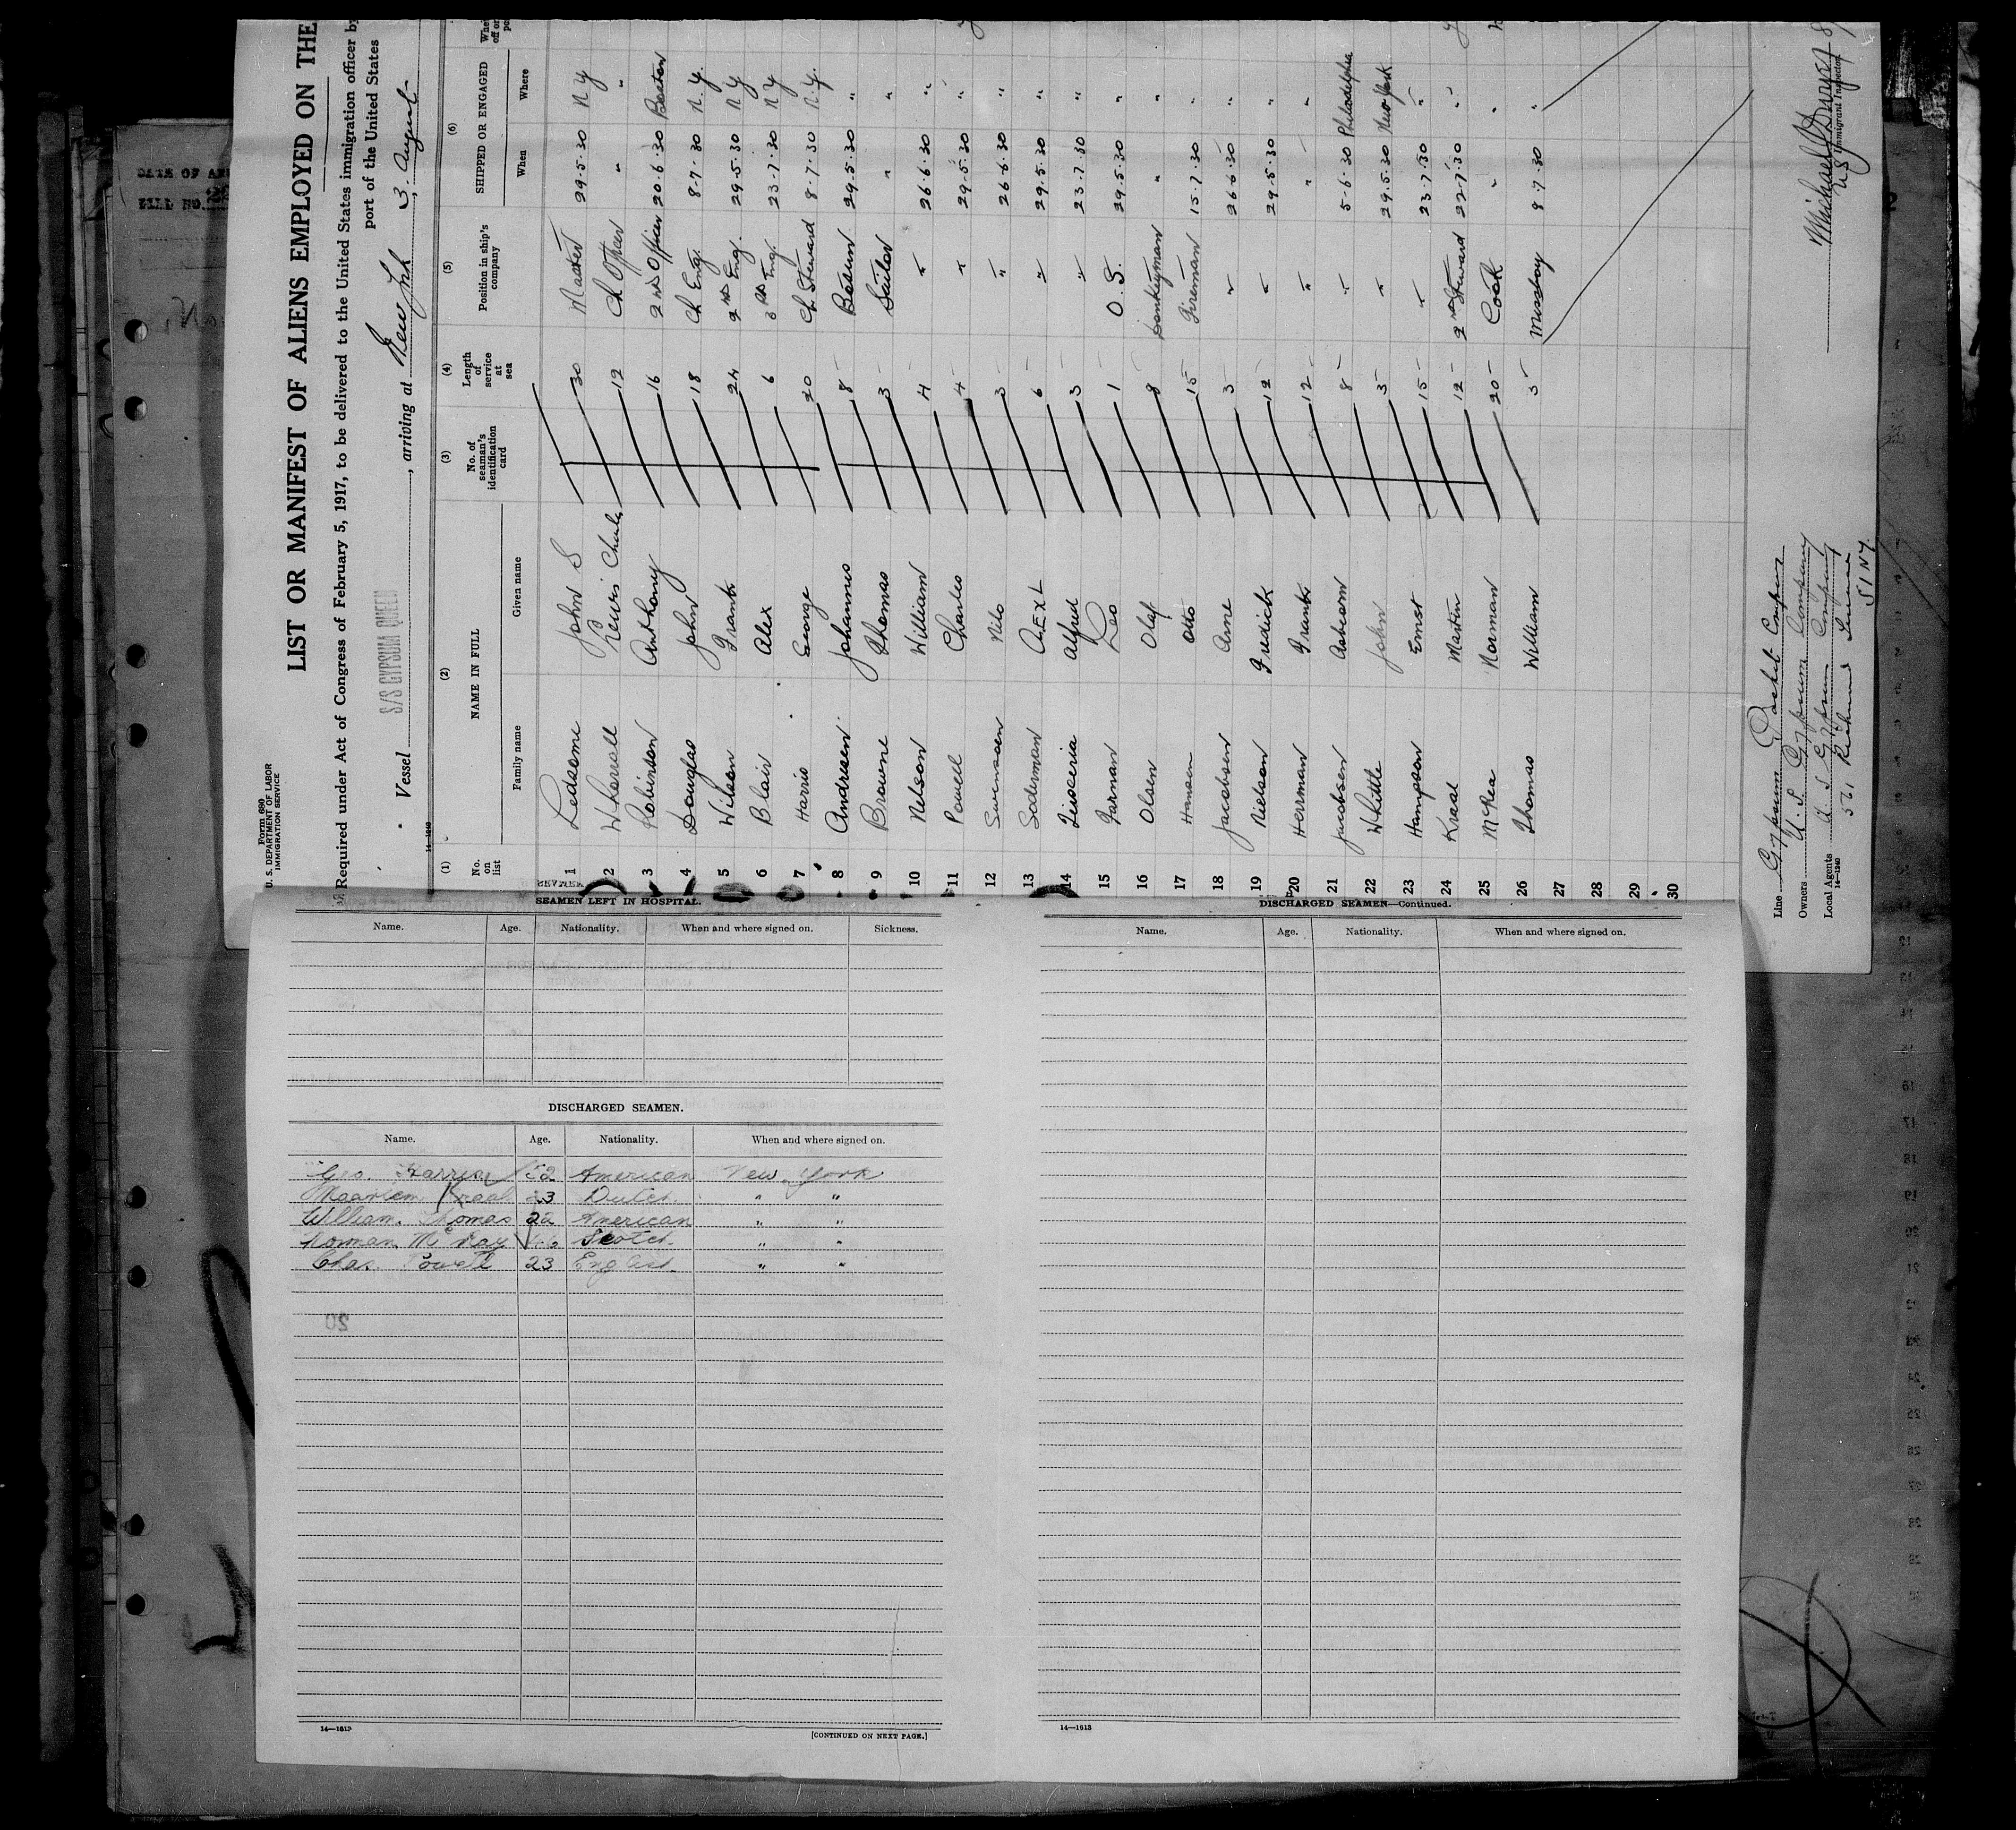 Form 680
U. S. DEPARTMENT OF LABOR
IMMIGRATION SERVICE
LIST OR MANIFEST OF ALIENS EMPLOYED ON THE
Required under Act of Congress of February 5, 1917, to be delivered to the United States immigration officer by
port of the United States
Vessel S/S GYPSUM QUEEN, arriving at New York 3. August
(1) (2) (3) (4) (5) (6)
No. on list NAME IN FULL No. of seaman's identification card Length of service at sea Position in ship's company SHIPPED OR ENGAGED
Family name Given name When Where
1 Ledsome John S 30 Master 29.5.30 N Y
2 Wherrall Lewis Charles 12 Ch Officer " "
3 Robinson Anthony 16 2nd Officer 20.6.30 Boston
4 Douglas John 18 Ch Eng. 8.7.30 N.Y.
5 Wilson Frank 24 2nd Eng. 29.5.30 N Y
6 Blair Alex 6 3rd Eng. 23.7.30 N Y
7 Harris George 20 Ch Steward 8.7.30 N.Y.
8 Andrisen Johannus 8 Bosun 29.5.30 "
9 Browne Thomas 3 Sailor " "
10 Nelson William 4 " 26.6.30 "
11 Powell Charles 4 " 29.5.30 "
12 Swenssen Nils 3 " 26.6.30 "
13 Soderman Axel 6 " 29.5.30 "
14 Alfred 3 " 23.7.30 "
15 Farnan Leo 1 O. S. 29.5.30 "
16 Olsen Olaf 8 Donkeyman " "
17 Hansen Otto 15 Fireman 15.7.30 "
18 Jacobsen Arne 3 " 26.6.30 "
19 Nielson Fredick 12 " 29.5.30 "
20 Herrman Frank 12 " " "
21 Jacobsen 8 " 5.6.30 Philadelphia
22 Whittle John 3 " 29.5.30 New York
23 Hampson Ernst 15 " 23.7.30 "
24 Kraal Martin 12 2nd Steward 22.7.30 "
25 McRea Norman 20 Cook " "
26 Thomas William 3 Messboy 8.7.30 "
27
28
29
30
Line Gypsum Packet Company
Owners U. S. Gypsum Company
Local Agents U S Gypsum Company
14—1240
561 Richmond Terrace
S I N Y.
U S Immigrant Inspector.
SEAMEN LEFT IN HOSPITAL.
Name. Age. Nationality. When and where signed on. Sickness.
DISCHARGED SEAMEN.
Name. Age. Nationality. When and where signed on.
Geo. Harris 52 American New York
Maarten Kraal 23 Dutch " "
William Thomas 22 American " "
Norman McKay Scotch " "
Chas. Powell 23 English " "
20
14—1613
[CONTINUED ON NEXT PAGE.]
DISCHARGED SEAMEN—Continued.
Name. Age. Nationality. When and where signed on.
14—1613